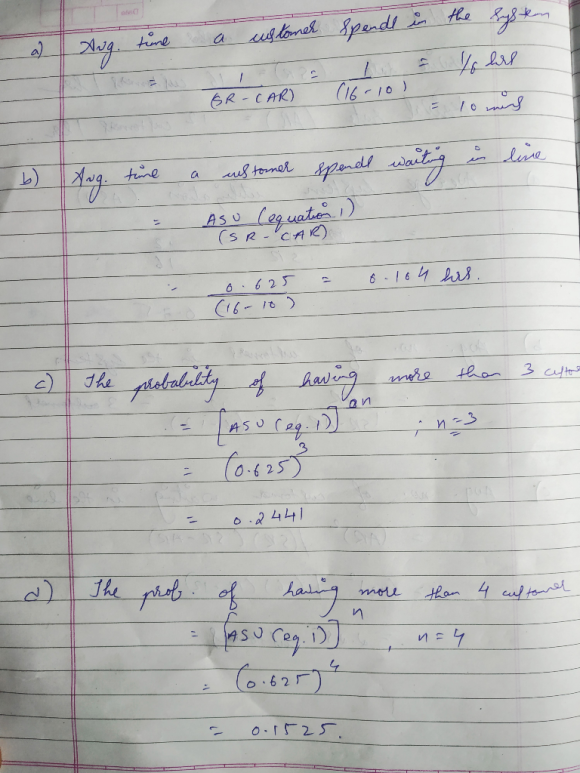 a) Avg. time a customer spends in the system
= 1/(SR - CAR) = 1/(16-10) = 1/6 hrs
= 10 mins
b) Avg. time a customer spends waiting in line
= ASU (equation 1)/(SR - CAR)
= 0.625/(16-10) = 0.104 hrs.
c) The probability of having more than 3 custo
= [ASU (eq. 1)]^n ; n=3
= (0.625)^3
= 0.2441
d) The prob. of having more than 4 customer
= [ASU (eq. 1)]^n , n=4
= (0.625)^4
= 0.1525.